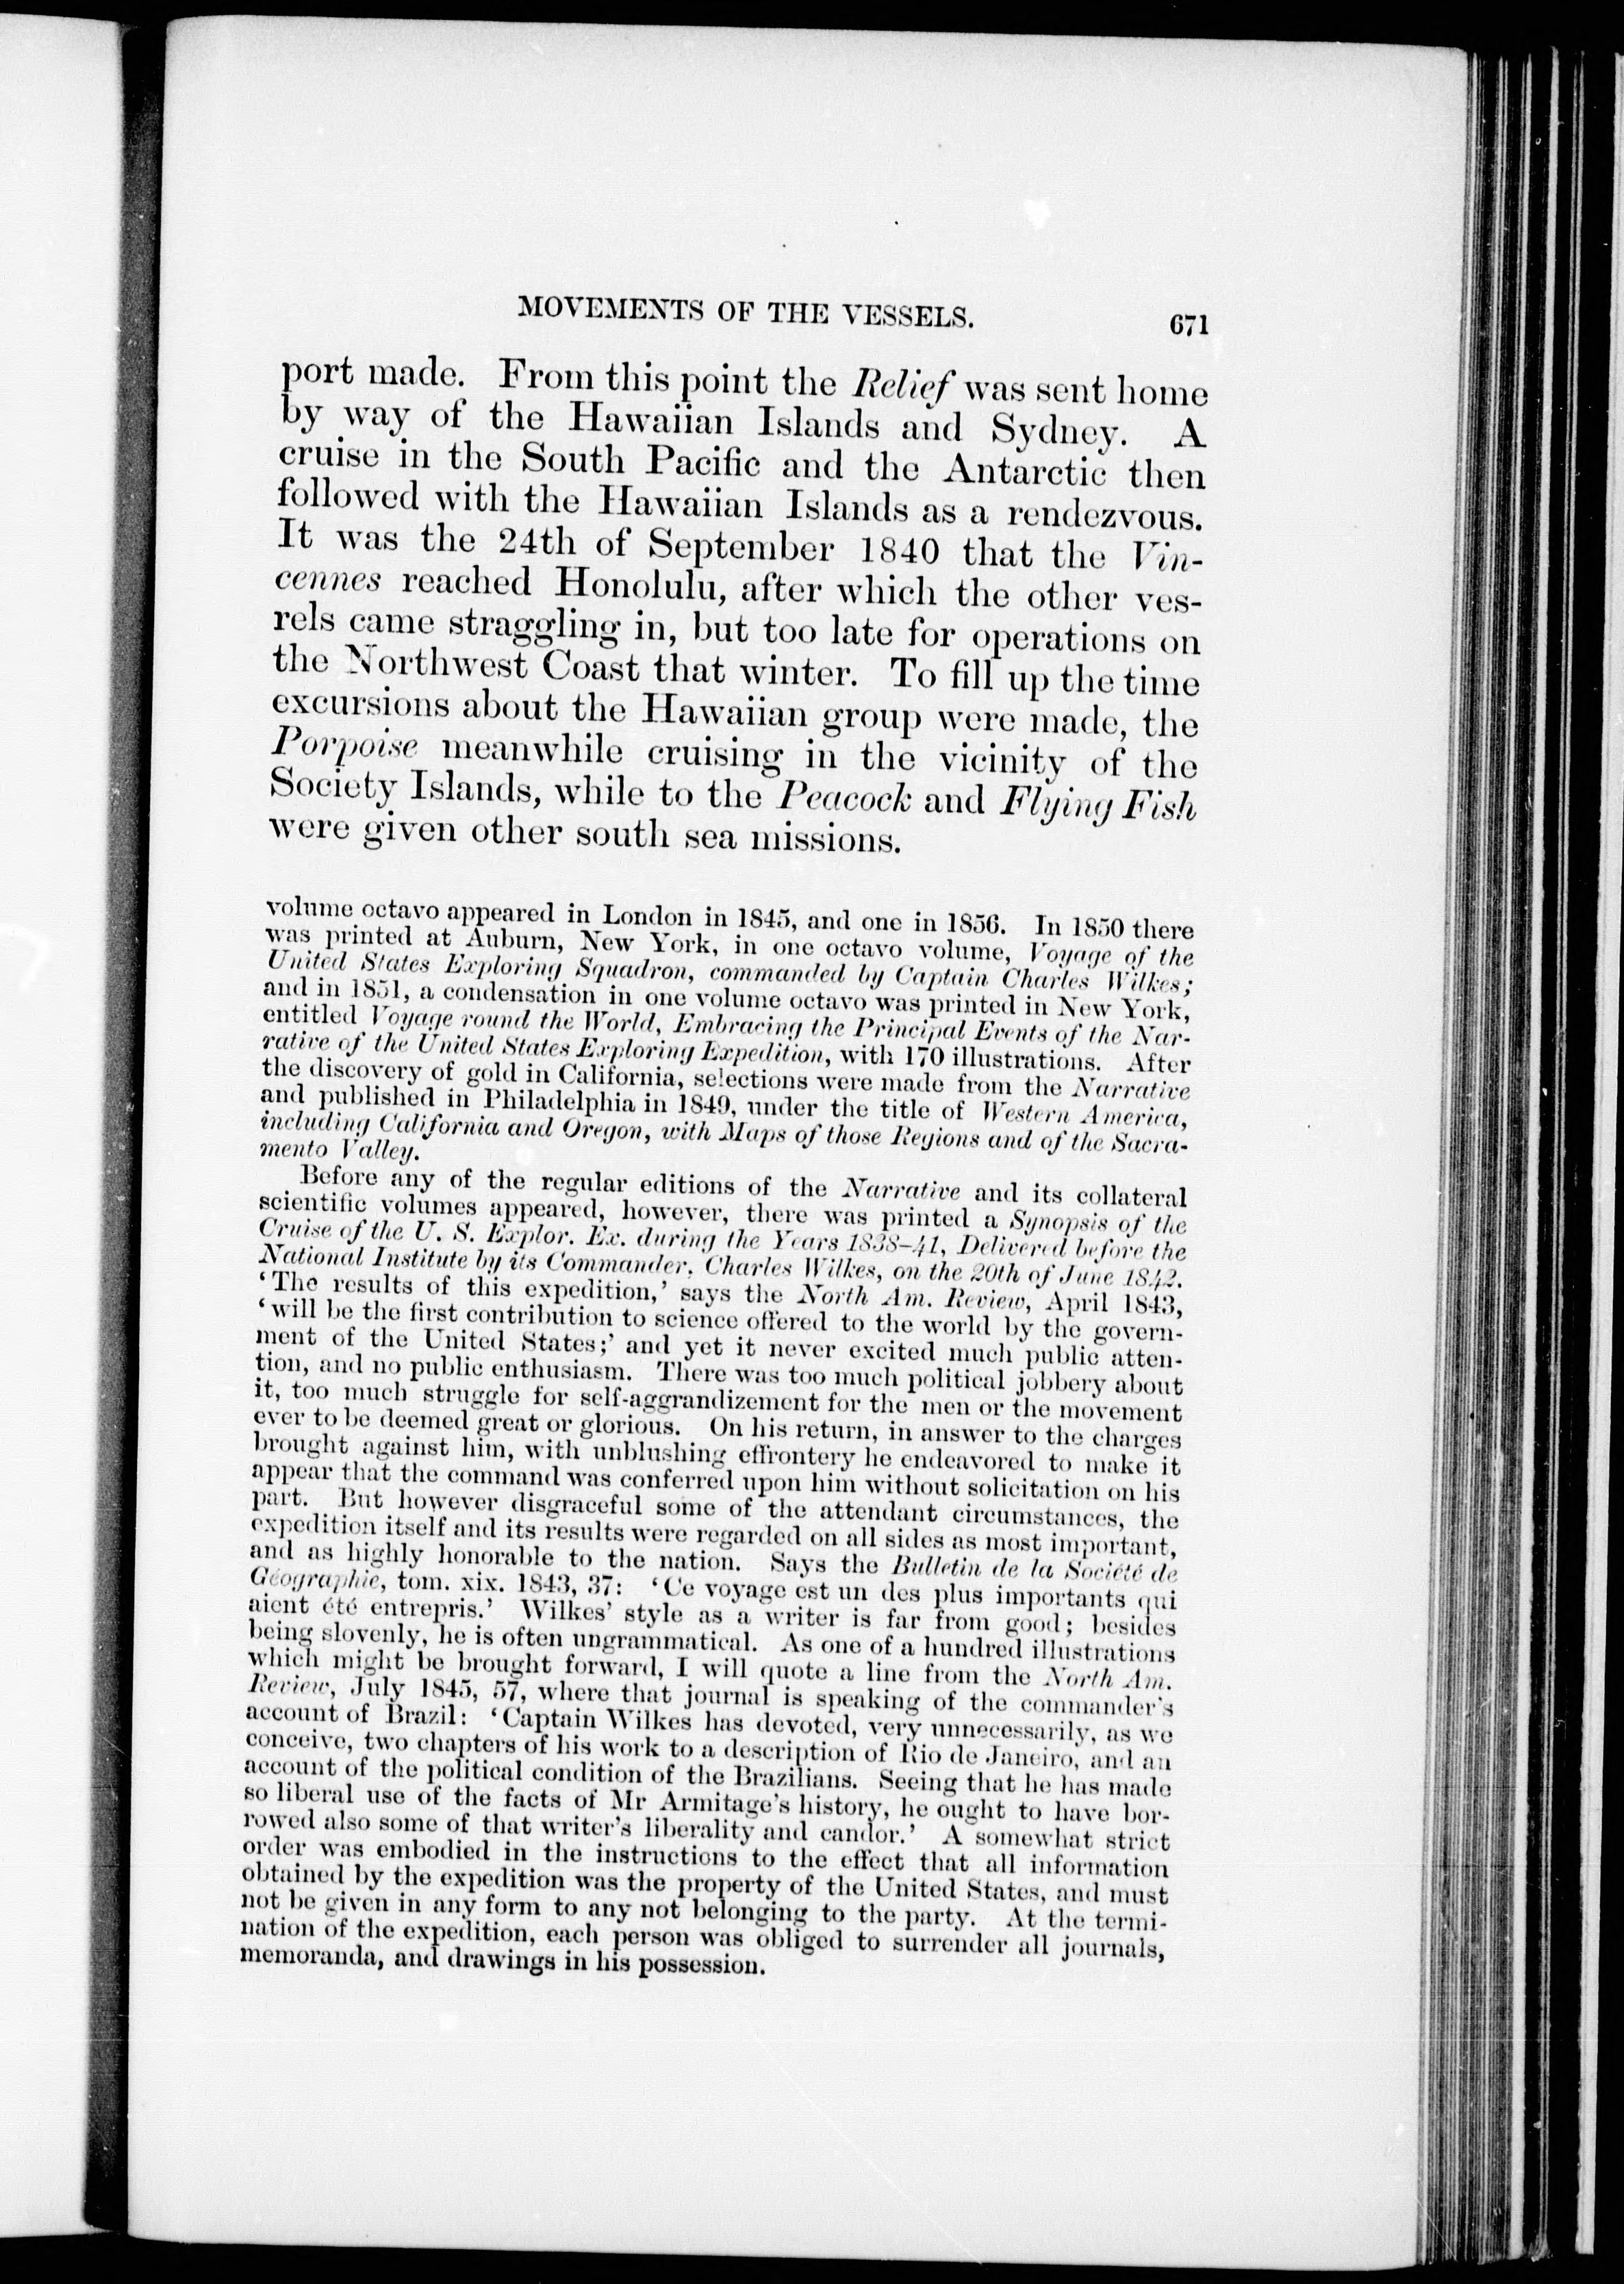 MOVEMENTS OF THE VESSELS. 671
port made. From this point the Relief was sent home
by way of the Hawaiian Islands and Sydney. A
cruise in the South Pacific and the Antarctic then
followed with the Hawaiian Islands as a rendezvous.
It was the 24th of September 1840 that the Vin-
cennes reached Honolulu, after which the other ves-
rels came straggling in, but too late for operations on
the Northwest Coast that winter. To fill up the time
excursions about the Hawaiian group were made, the
Porpoise meanwhile cruising in the vicinity of the
Society Islands, while to the Peacock and Flying Fish
were given other south sea missions.
volume octavo appeared in London in 1845, and one in 1856. In 1850 there
was printed at Auburn, New York, in one octavo volume, Voyage of the
United States Exploring Squadron, commanded by Captain Charles Wilkes;
and in 1851, a condensation in one volume octavo was printed in New York,
entitled Voyage round the World, Embracing the Principal Events of the Nar-
rative of the United States Exploring Expedition, with 170 illustrations. After
the discovery of gold in California, selections were made from the Narrative
and published in Philadelphia in 1849, under the title of Western America,
including California and Oregon, with Maps of those Regions and of the Sacra-
mento Valley.
Before any of the regular editions of the Narrative and its collateral
scientific volumes appeared, however, there was printed a Synopsis of the
Cruise of the U. S. Explor. Ex. during the Years 1838-41, Delivered before the
National Institute by its Commander, Charles Wilkes, on the 20th of June 1842.
'The results of this expedition,' says the North Am. Review, April 1843,
'will be the first contribution to science offered to the world by the govern-
ment of the United States;' and yet it never excited much public atten-
tion, and no public enthusiasm. There was too much political jobbery about
it, too much struggle for self-aggrandizement for the men or the movement
ever to be deemed great or glorious. On his return, in answer to the charges
brought against him, with unblushing effrontery he endeavored to make it
appear that the command was conferred upon him without solicitation on his
part. But however disgraceful some of the attendant circumstances, the
expedition itself and its results were regarded on all sides as most important,
and as highly honorable to the nation. Says the Bulletin de la Société de
Géographie, tom. xix. 1843, 37: 'Ce voyage est un des plus importants qui
aient été entrepris.' Wilkes' style as a writer is far from good; besides
being slovenly, he is often ungrammatical. As one of a hundred illustrations
which might be brought forward, I will quote a line from the North Am.
Review, July 1845, 57, where that journal is speaking of the commander's
account of Brazil: 'Captain Wilkes has devoted, very unnecessarily, as we
conceive, two chapters of his work to a description of Rio de Janeiro, and an
account of the political condition of the Brazilians. Seeing that he has made
so liberal use of the facts of Mr Armitage's history, he ought to have bor-
rowed also some of that writer's liberality and candor.' A somewhat strict
order was embodied in the instructions to the effect that all information
obtained by the expedition was the property of the United States, and must
not be given in any form to any not belonging to the party. At the termi-
nation of the expedition, each person was obliged to surrender all journals,
memoranda, and drawings in his possession.